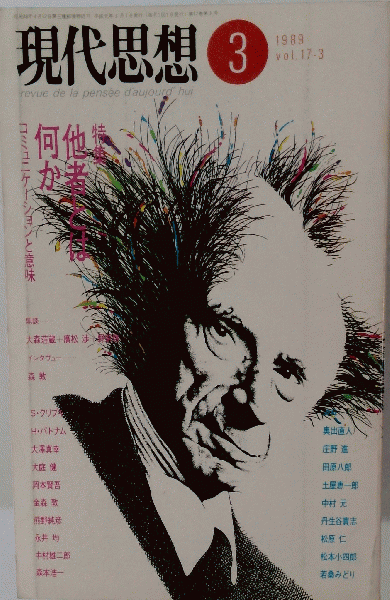 現代思想
3
1989
vol.17-3
revue de la pensée d'aujourd'hui
特集
他者とは
何か
コミュニケーションと意味
インタヴュー
森 敦
S・クリプキ
H・パトナム
大澤真幸
大庭 健
岡本賢吾
金森 敦
熊野純彦
永井 均
中村雄二郎
森本浩一
奥出直人
庄野 進
田原八郎
土屋恵一郎
中村 元
丹生谷貴志
松原 仁
松本小四郎
若桑みどり